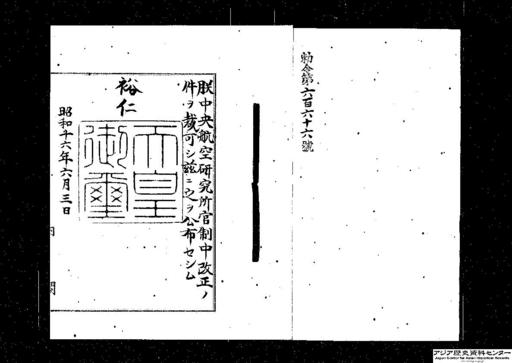 勅令第六百六十六號
朕中央航空研究所官制中改正ノ
件ヲ裁可シ茲ニ之ヲ公布セシム
裕仁
天皇
御璽
昭和十六年六月三日
内閣
アジア歴史資料センター
Japan Center for Asian Historical Records